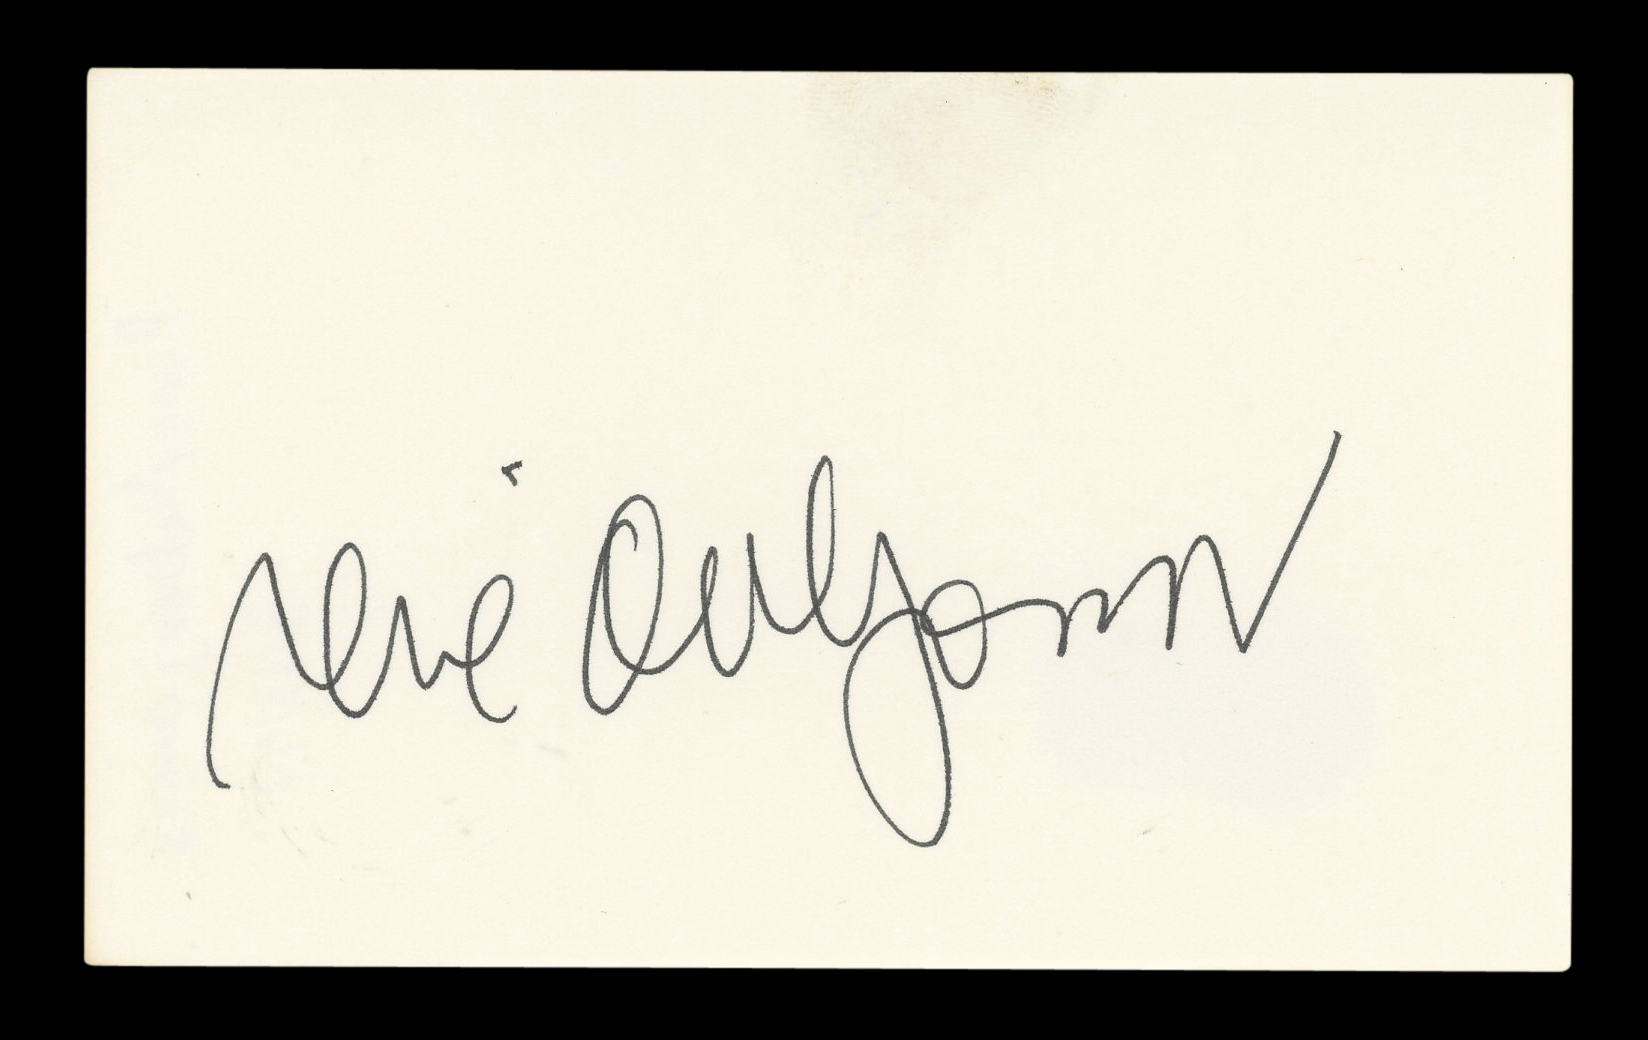 rené auberjonois